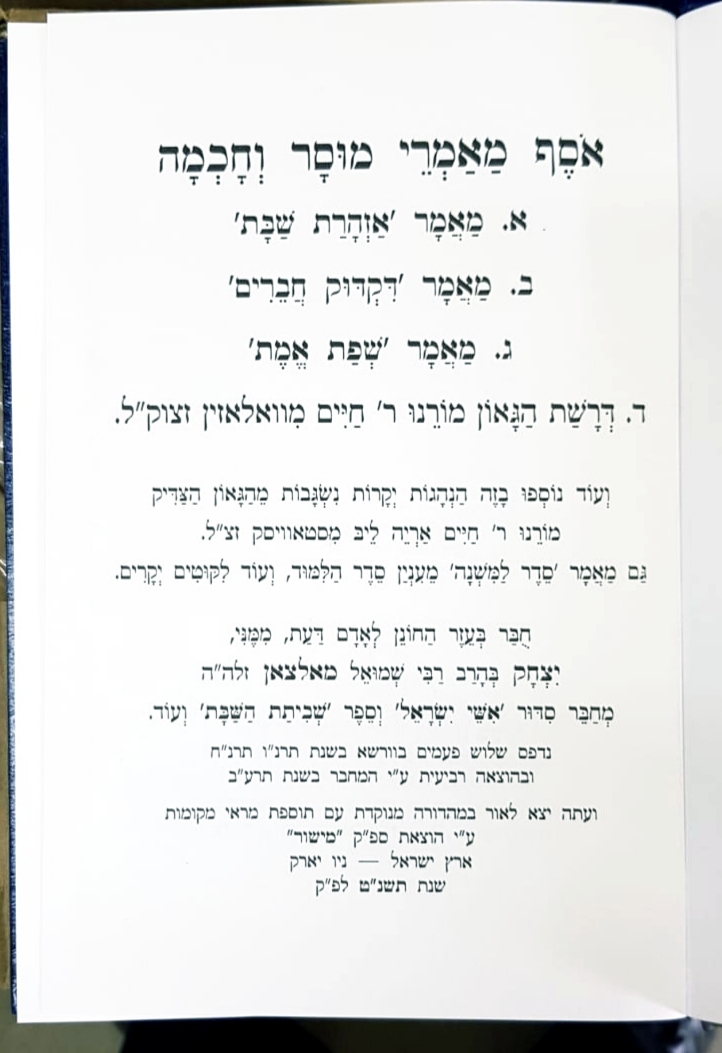 אֹסֶף מַאַמְרֵי מוּסָר וְחָכְמָה
א. מַאֲמָר 'אַזְהָרַת שַׁבָּת'
ב. מַאֲמָר 'דִּקְדּוּק חֲבֵרִים'
ג. מַאֲמָר 'שְׂפַת אֱמֶת'
ד. דְּרָשַׁת הַגָּאוֹן מוֹרֵנוּ ר' חַיִּים מִוואלאזין זצוק"ל.
וְעוֹד נוֹסְפוּ בָזֶה הַנְהָגוֹת יְקָרוֹת נִשְׂגָּבוֹת מֵהַגָּאוֹן הַצַּדִּיק
מוֹרֵנוּ ר' חַיִּים אַרְיֵה לֵיבּ מִסטאוויסק זצ"ל.
גַּם מַאֲמָר 'סֵדֶר לַמִּשְׁנָה' מֵעִנְיַן סֵדֶר הַלִּמּוּד, וְעוֹד לִקּוּטִים יְקָרִים.
חֻבַּר בְּעֵזֶר הַחוֹנֵן לְאָדָם דַּעַת, מִמֶּנִּי,
יִצְחָק בְּהָרַב רַבִּי שְׁמוּאֵל מאלצאן זלה"ה
מְחַבֵּר סִדּוּר 'אִשֵּׁי יִשְׂרָאֵל' וְסֵפֶר 'שְׁבִיתַת הַשַּׁבָּת' וְעוֹד.
נדפס שלוש פעמים בוורשא בשנת תרנ"ו תרנ"ח
ובהוצאה רביעית ע"י המחבר בשנת תרע"ב
ועתה יצא לאור במהדורה מנוקדת עם תוספת מראי מקומות
ע"י הוצאת ספ"ק "מישור"
ארץ ישראל — ניו יארק
שנת תשנ"ט לפ"ק